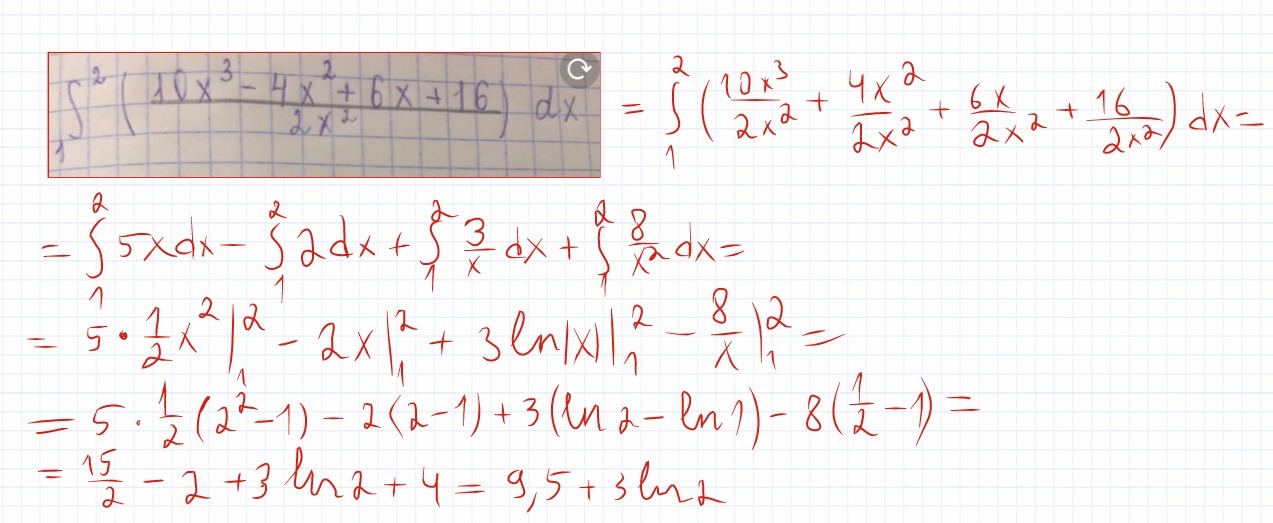 ∫₁² ( (10x³ − 4x² + 6x + 16) / 2x² ) dx = ∫₁² ( 10x³/2x² + 4x²/2x² + 6x/2x² + 16/2x² ) dx =
= ∫₁² 5xdx − ∫₁² 2dx + ∫₁² 3/x dx + ∫₁² 8/x² dx =
= 5 · 1/2 x² |₁² − 2x |₁² + 3 ln|x| |₁² − 8/x |₁² =
= 5 · 1/2 (2² − 1) − 2(2 − 1) + 3(ln 2 − ln 1) − 8(1/2 − 1) =
= 15/2 − 2 + 3 ln 2 + 4 = 9,5 + 3 ln 2